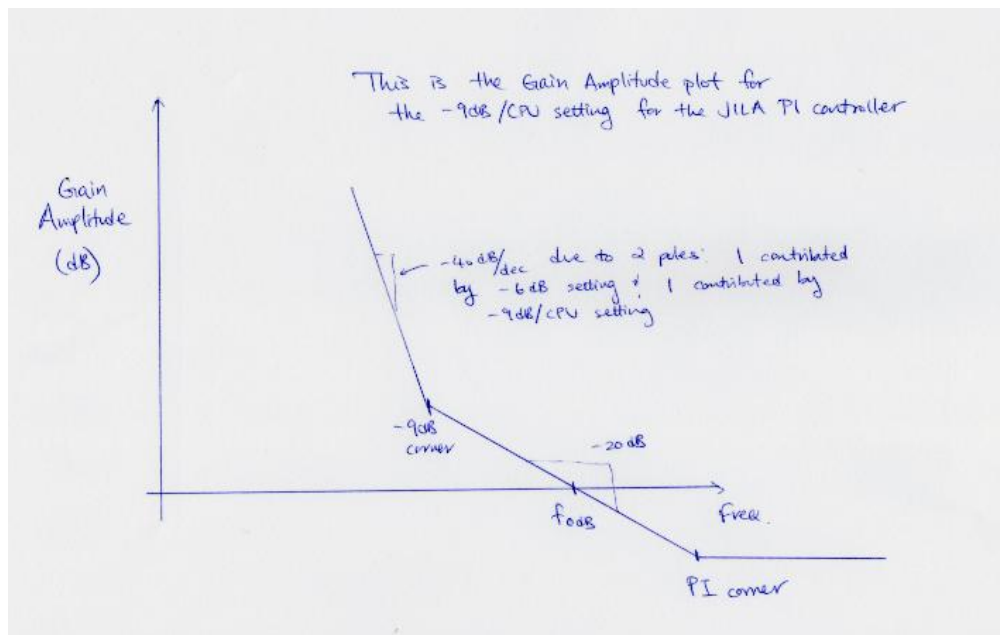 This is the Gain Amplitude plot for
the -9dB/CPU setting for the JILA PI controller
Gain
Amplitude
(dB)
-40dB/dec due to 2 poles: 1 contributed
by -6dB setting & 1 contributed by
-9dB/CPU setting
-9dB
corner
-20dB
f0dB
Freq.
PI corner